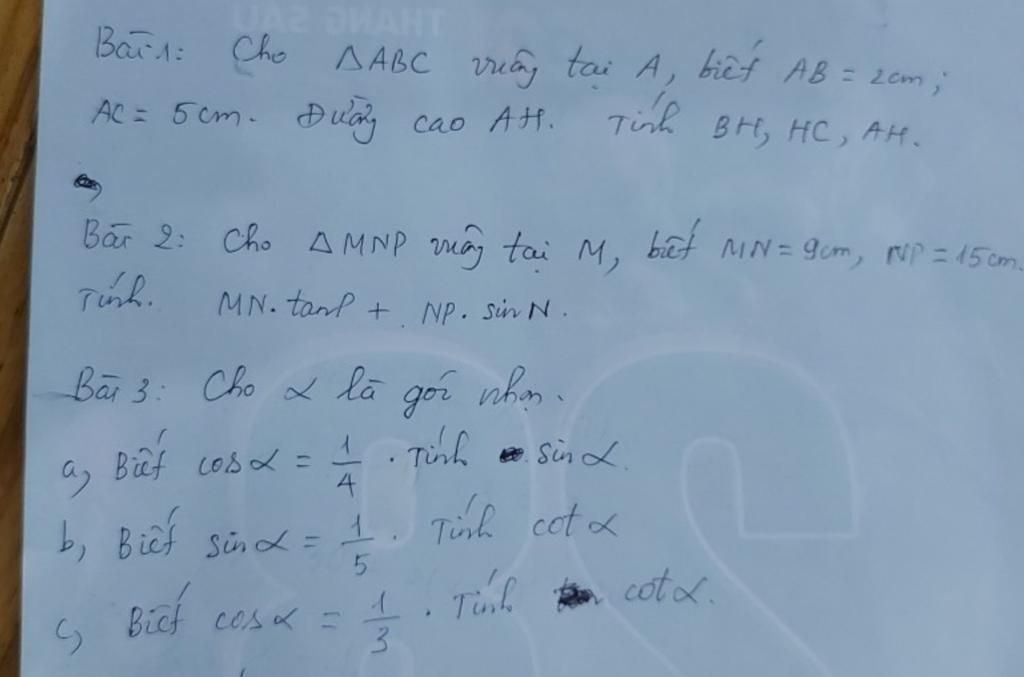 THÁNG SÁU
Bài 1: Cho △ABC vuông tại A, biết AB = 2cm;
AC = 5cm. Đường cao AH. Tính BH, HC, AH.
Bài 2: Cho △MNP vuông tại M, biết MN = 9cm, NP = 15cm.
Tính. MN. tanP + NP. sin N.
Bài 3: Cho α là góc nhọn.
a, Biết cosα = 1/4 . Tính sin α.
b, Biết sinα = 1/5 . Tính cot α
c, Biết cosα = 1/3 . Tính cotα.
28